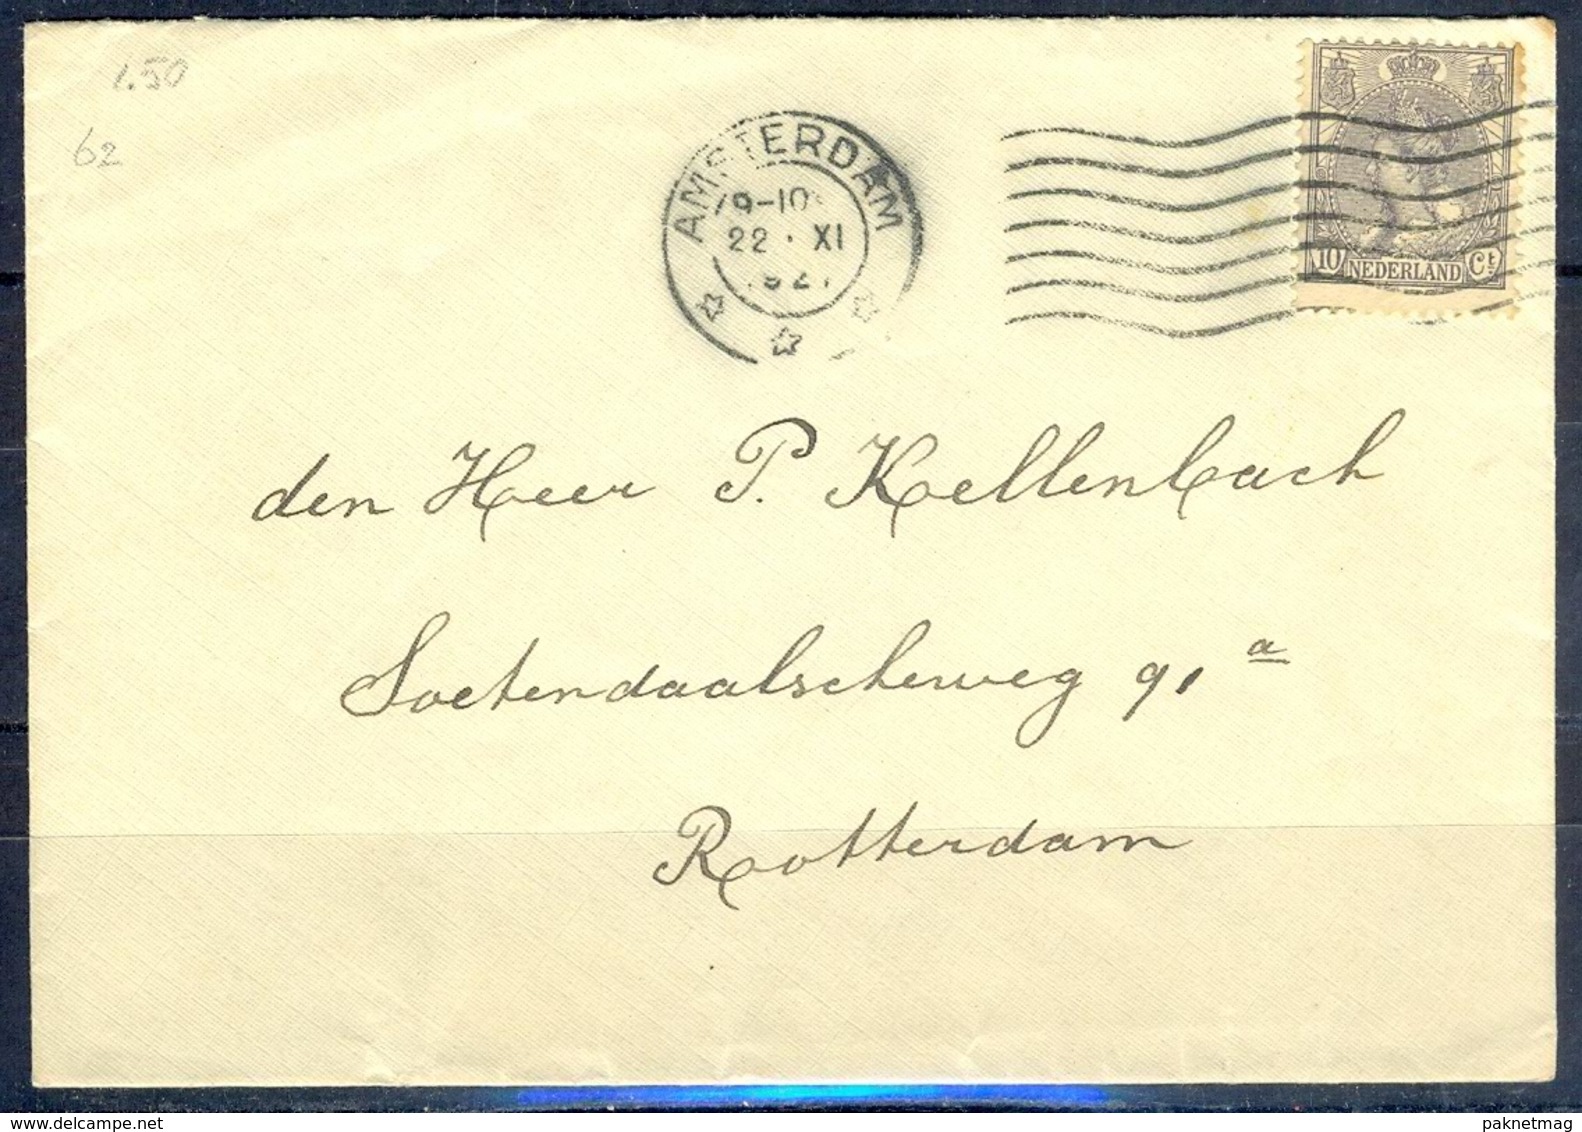 1.50
62
AMSTERDAM
22 · XI
10 NEDERLAND Ct
den Heer P. Kellenbach
Soetendaalscheweg 91 a
Rotterdam
www.delcampe.net
paknetmag